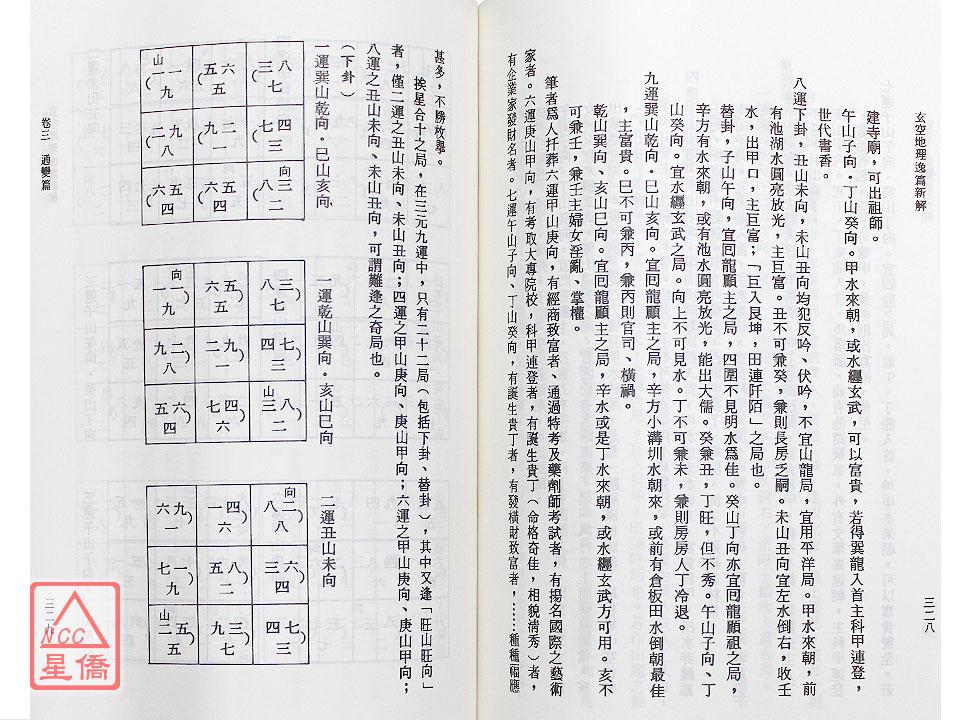 玄空地理逸篇新解
三二八
建寺廟，可出祖師。
午山子向．丁山癸向。甲水來朝，或水纒玄武，可以富貴，若得巽龍入首主科甲連登，
世代書香。
八運下卦，丑山未向，未山丑向均犯反吟、伏吟，不宜山龍局，宜用平洋局。甲水來朝，前
有池湖水圓亮放光，主巨富。丑不可兼癸，兼則長房乏嗣。未山丑向宜左水倒右，收壬
水，出甲口，主巨富；「巨入艮坤，田連阡陌」之局也。
替卦，子山午向，宜囘龍顧主之局，四圍不見明水爲佳。癸山丁向亦宜囘龍顧祖之局，
辛方有水來朝，或有池水圓亮放光，能出大儒。癸兼丑，丁旺，但不秀。午山子向、丁
山癸向。宜水纒玄武之局。向上不可見水。丁不可兼未，兼則房房人丁冷退。
九運巽山乾向．巳山亥向。宜囘龍顧主之局，辛方小溝圳水朝來，或前有倉板田水倒朝最佳
，主富貴。巳不可兼丙，兼丙則官司、橫禍。
乾山巽向、亥山巳向。宜囘龍顧主之局，辛水或是丁水來朝，或水纒玄武方可用。亥不
可兼壬，兼壬主婦女淫亂、掌權。
筆者爲人扦葬六運甲山庚向，有經商致富者、通過特考及藥劑師考試者，有揚名國際之藝術
家者。六運庚山甲向，有考取大專院校，科甲連登者，有誕生貴丁（命格奇佳，相貌淸秀）者，
有企業家發財名者。七運午山子向、丁山癸向，有誕生貴丁者，有發橫財致富者，……種種福應
甚多，不勝枚擧。
挨星合十之局，在三元九運中，只有二十二局（包括下卦、替卦），其中又逢「旺山旺向」
者，僅二運之丑山未向、未山丑向；四運之甲山庚向、庚山甲向；六運之甲山庚向、庚山甲向；
八運之丑山未向、未山丑向，可謂難逢之奇局也。
（下卦）
一運巽山乾向．巳山亥向
山 一一 九
五六 五
三八 七
二九 八
九二 一
七四 三
六五 四
四七 六
向 八三 二
一運乾山巽向．亥山巳向
向 一一 九
六五 五
八三 七
九二 八
二九 一
四七 三
五六 四
七四 六
山 三八 二
二運丑山未向
六九 一
一四 六
向 八二 八
七一 九
五八 二
三六 四
山 二五 五
九三 七
四七 三
卷三　通變篇
NCC
星僑